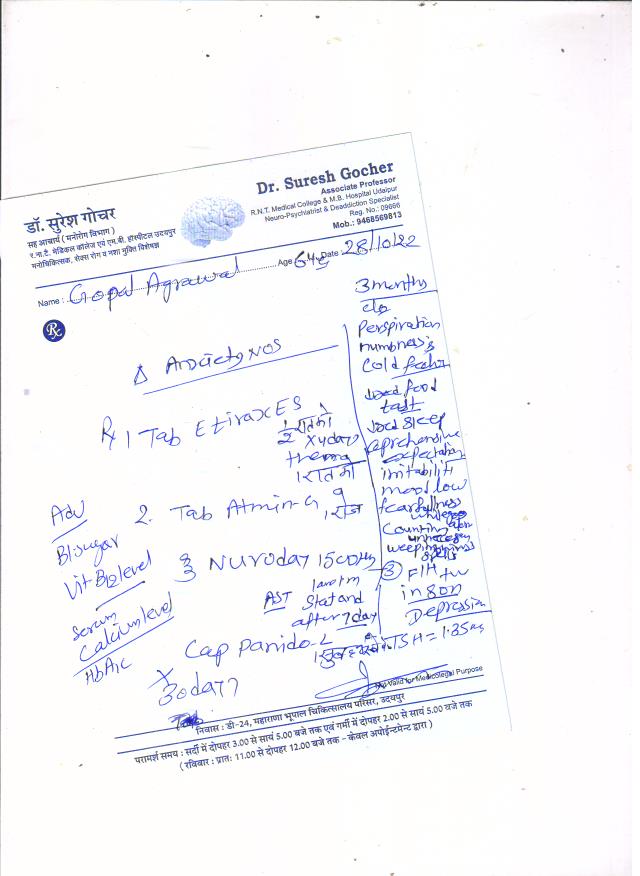 Dr. Suresh Gocher
Associate Professor
R.N.T. Medical College & M.B. Hospital Udaipur
Neuro-Psychiatrist & Deaddiction Specialist
Reg. No.: 09666
Mob.: 9468569813
डॉ. सुरेश गोचर
सह आचार्य ( मनोरोग विभाग )
र.ना.टै. मेडिकल कॉलेज एवं एम.बी. हास्पीटल उदयपुर
मनोचिकित्सक, सेक्स रोग व नशा मुक्ति विशेषज्ञ
Name : Gopal Agrawal Age 64y Date : 28/10/22
Rx
3 months
c/o
Perspiration
numbness
Cold
food
tast
sleep
irritabiliti
mood low
fearfullness
Counting
weeping spells
③ F/H
in son
Depression
TSH = 1.35
Δ Anxiety NOS
Rx 1 Tab Etirax ES
1/2 रात को
x 4 day
1 रात को
2. Tab Atmin-G
1 रोज
3 Nuroday 1500
AST Stat and
after 7 day
Cap Panido-L
x
30 day
Adv
Bl sugar
Vit B12 level
Serum
Calcium level
HbA1c
Not Valid for Medicolegal Purpose
निवास : डी-24, महाराणा भूपाल चिकित्सालय परिसर, उदयपुर
परामर्श समय : सर्दी में दोपहर 3.00 से सायं 5.00 बजे तक एवं गर्मी में दोपहर 2.00 से सायं 5.00 बजे तक
( रविवार : प्रात: 11.00 से दोपहर 12.00 बजे तक - केवल अपोईन्टमेन्ट द्वारा )